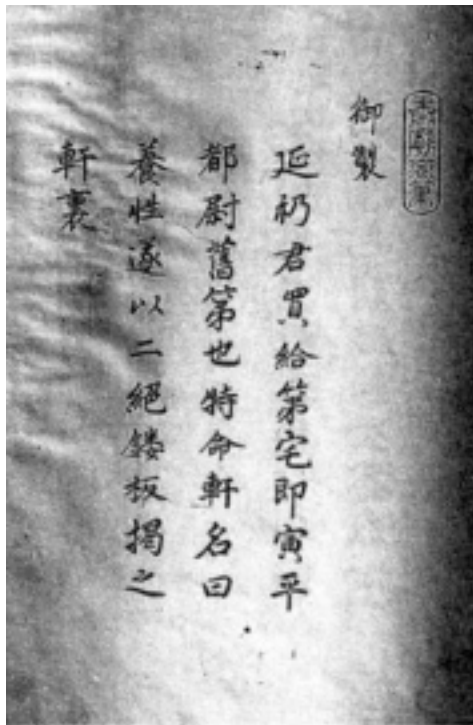 御製
延礽君買給第宅即寅平
都尉舊第也特命軒名曰
養性遂以二絕鏤板揭之
軒裏